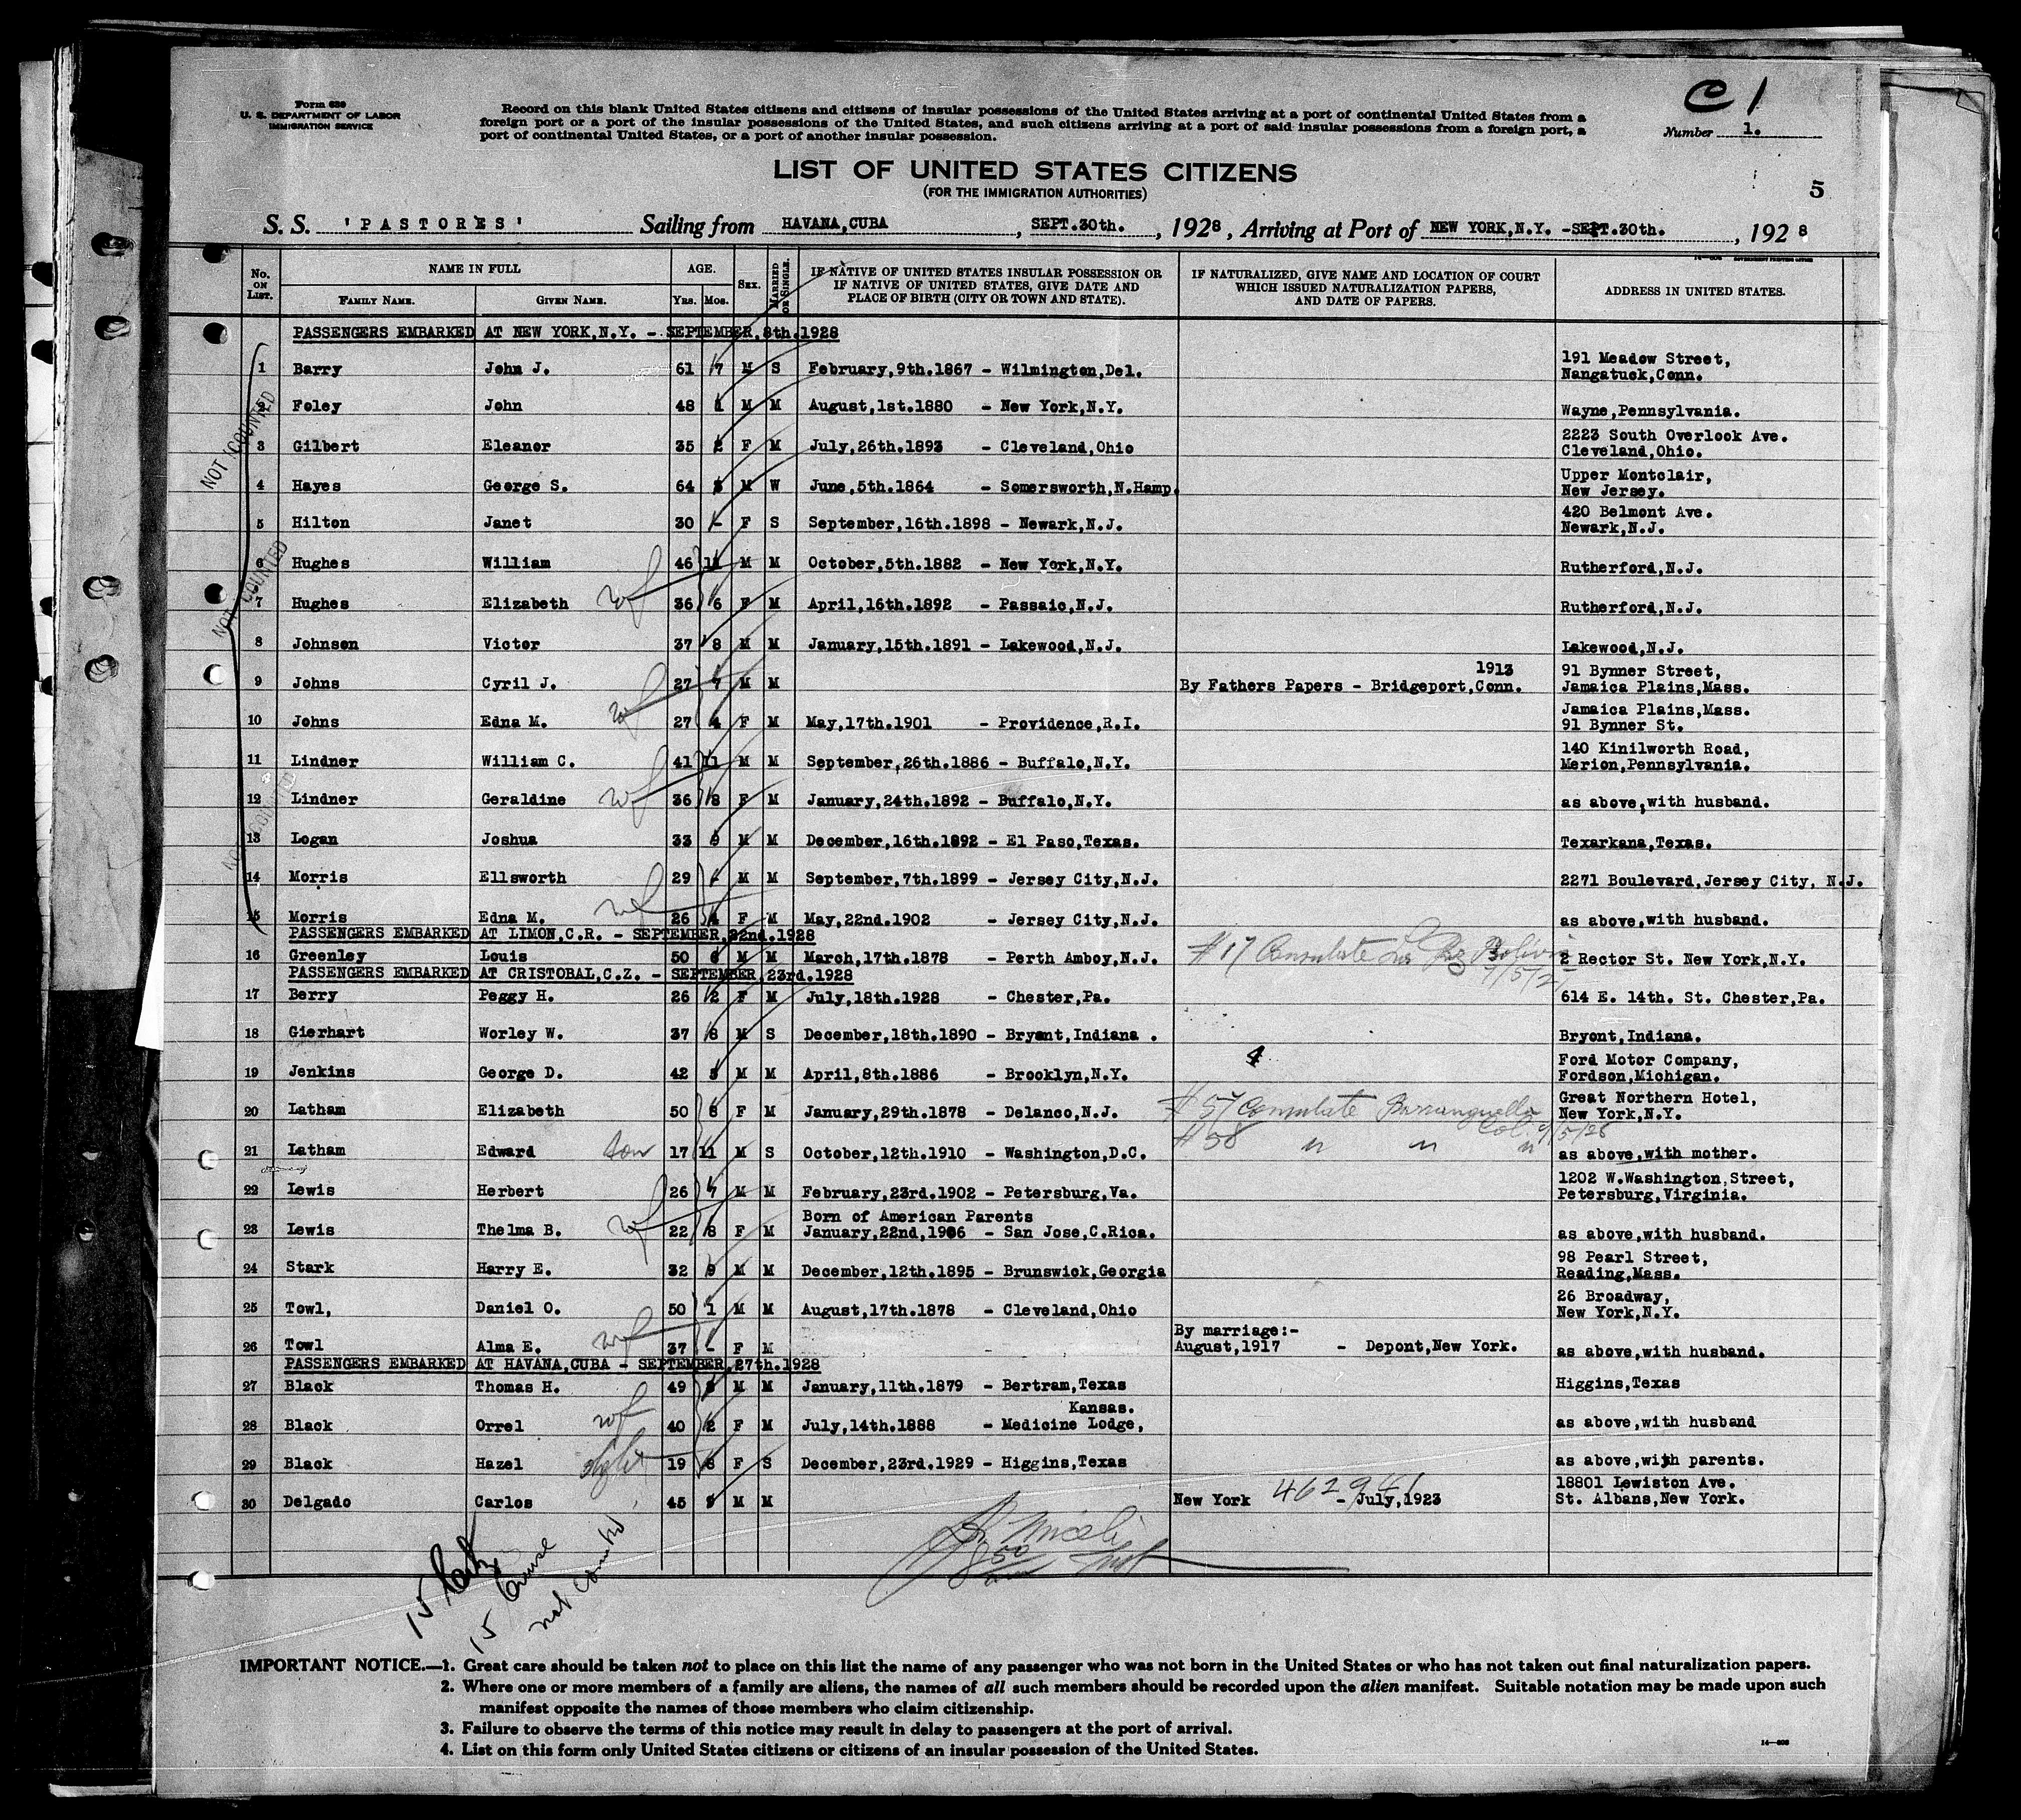 C 1
Form 630
U. S. DEPARTMENT OF LABOR
IMMIGRATION SERVICE
Record on this blank United States citizens and citizens of insular possessions of the United States arriving at a port of continental United States from a
foreign port or a port of the insular possessions of the United States, and such citizens arriving at a port of said insular possessions from a foreign port, a
port of continental United States, or a port of another insular possession.
Number 1.
LIST OF UNITED STATES CITIZENS
(FOR THE IMMIGRATION AUTHORITIES)
5
S. S. 'PASTORES' Sailing from HAVANA,CUBA , SEPT.30th. , 1928 , Arriving at Port of NEW YORK,N.Y. -SEPT.30th. , 192 8
No. ON LIST. NAME IN FULL AGE. SEX. MARRIED OR SINGLE. IF NATIVE OF UNITED STATES INSULAR POSSESSION OR IF NATIVE OF UNITED STATES, GIVE DATE AND PLACE OF BIRTH (CITY OR TOWN AND STATE). IF NATURALIZED, GIVE NAME AND LOCATION OF COURT WHICH ISSUED NATURALIZATION PAPERS, AND DATE OF PAPERS. ADDRESS IN UNITED STATES.
FAMILY NAME. GIVEN NAME. Yrs. Mos.
PASSENGERS EMBARKED AT NEW YORK,N.Y. - SEPTEMBER,8th.1928
NOT COUNTED
NOT COUNTED
1 Barry John J. 61 7 M S February,9th.1867 - Wilmington,Del. 191 Meadow Street, Nangatuck,Conn.
2 Foley John 48 1 M M August,1st.1880 - New York,N.Y. Wayne,Pennsylvania.
3 Gilbert Eleanor 35 2 F M July,26th.1893 - Cleveland,Ohio 2223 South Overlook Ave. Cleveland,Ohio.
4 Hayes George S. 64 3 M W June,5th.1864 - Somersworth,N.Hamp. Upper Montclair, New Jersey.
5 Hilton Janet 30 - F S September,16th.1898 - Newark,N.J. 420 Belmont Ave. Newark,N.J.
6 Hughes William 46 11 M M October,5th.1882 - New York,N.Y. Rutherford,N.J.
7 Hughes Elizabeth wf 36 6 F M April,16th.1892 - Passaic,N.J. Rutherford,N.J.
8 Johnson Victor 37 8 M M January,15th.1891 - Lakewood,N.J. Lakewood,N.J.
9 Johns Cyril J. 27 7 M M By Fathers Papers - Bridgeport,Conn. 1913 91 Bynner Street, Jamaica Plains,Mass.
10 Johns Edna M. wf 27 4 F M May,17th.1901 - Providence,R.I. Jamaica Plains,Mass. 91 Bynner St.
11 Lindner William C. 41 11 M M September,26th.1886 - Buffalo,N.Y. 140 Kinilworth Road, Merion,Pennsylvania.
12 Lindner Geraldine wf 36 8 F M January,24th.1892 - Buffalo,N.Y. as above,with husband.
13 Logan Joshua 33 9 M M December,16th.1892 - El Paso,Texas. Texarkana,Texas.
14 Morris Ellsworth 29 - M M September,7th.1899 - Jersey City,N.J. 2271 Boulevard,Jersey City, N.J.
15 Morris Edna M. wf 26 4 F M May,22nd.1902 - Jersey City,N.J. as above,with husband.
PASSENGERS EMBARKED AT LIMON,C.R. - SEPTEMBER,22nd.1928
16 Greenley Louis 50 6 M M March,17th.1878 - Perth Amboy,N.J. #17 Consulate La Paz Bolivia 2 Rector St. New York,N.Y.
PASSENGERS EMBARKED AT CRISTOBAL,C.Z. - SEPTEMBER,23rd.1928
17 Berry Peggy H. 26 2 F M July,18th.1928 - Chester,Pa. 614 E. 14th. St. Chester,Pa.
18 Gierhart Worley W. 37 8 M S December,18th.1890 - Bryant,Indiana . Bryont,Indiana.
19 Jenkins George D. 42 5 M M April,8th.1886 - Brooklyn,N.Y. 4 Ford Motor Company, Fordson,Michigan.
20 Latham Elizabeth 50 8 F M January,29th.1878 - Delanco,N.J. #57 Consulate Barranquella Col. 9/5/28 Great Northern Hotel, New York,N.Y.
21 Latham Edward son 17 11 M S October,12th.1910 - Washington,D.C. #58 " " " as above,with mother.
22 Lewis Herbert 26 7 M M February,23rd.1902 - Petersburg,Va. 1202 W.Washington,Street, Petersburg,Virginia.
23 Lewis Thelma B. wf 22 8 F M Born of American Parents January,22nd,1906 - San Jose,C.Rica. as above,with husband.
24 Stark Harry E. 32 9 M M December,12th.1895 - Brunswick,Georgia 98 Pearl Street, Reading,Mass.
25 Towl, Daniel O. 50 1 M M August,17th.1878 - Cleveland,Ohio 26 Broadway, New York,N.Y.
26 Towl Alma E. wf 37 - F M - By marriage:- August,1917 - Depont,New York. as above,with husband.
PASSENGERS EMBARKED AT HAVANA,CUBA - SEPTEMBER,27th.1928
27 Black Thomas H. 49 8 M M January,11th.1879 - Bertram,Texas Higgins,Texas
28 Black Orrel wf 40 2 F M July,14th.1888 - Medicine Lodge, Kansas. as above,with husband
29 Black Hazel 19 8 F S December,23rd.1929 - Higgins,Texas as above,with parents.
30 Delgado Carlos 45 9 M M New York 462941 - July,1923 18801 Lewiston Ave. St. Albans,New York.
15
15 Cruise
not counted
IMPORTANT NOTICE.—1. Great care should be taken not to place on this list the name of any passenger who was not born in the United States or who has not taken out final naturalization papers.
2. Where one or more members of a family are aliens, the names of all such members should be recorded upon the alien manifest. Suitable notation may be made upon such
manifest opposite the names of those members who claim citizenship.
3. Failure to observe the terms of this notice may result in delay to passengers at the port of arrival.
4. List on this form only United States citizens or citizens of an insular possession of the United States.